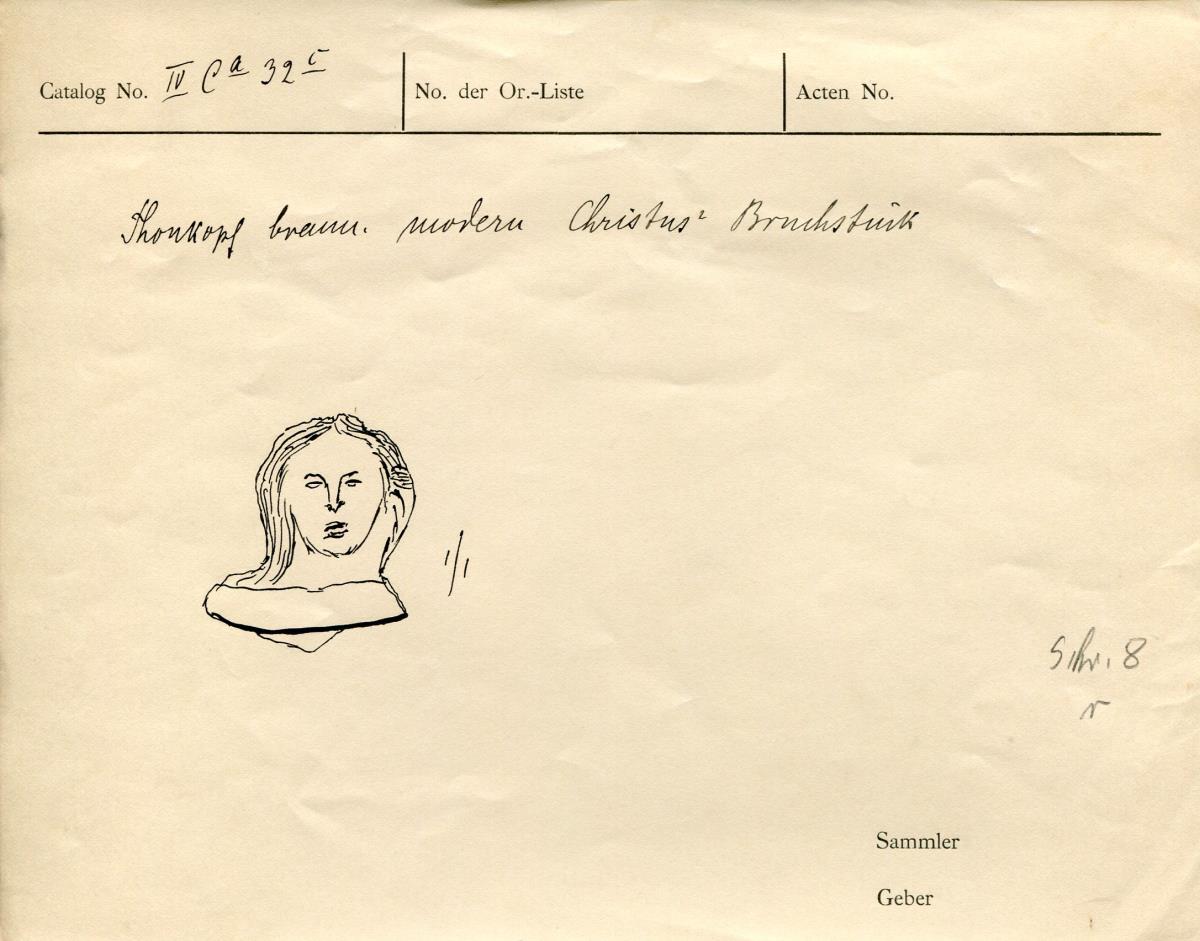 Catalog No. IV Ca 32c
No. der Or.-Liste
Acten No.
Thonkopf braun. modern Christus? Bruchstück
1/1
Schr. 8
r
Sammler
Geber